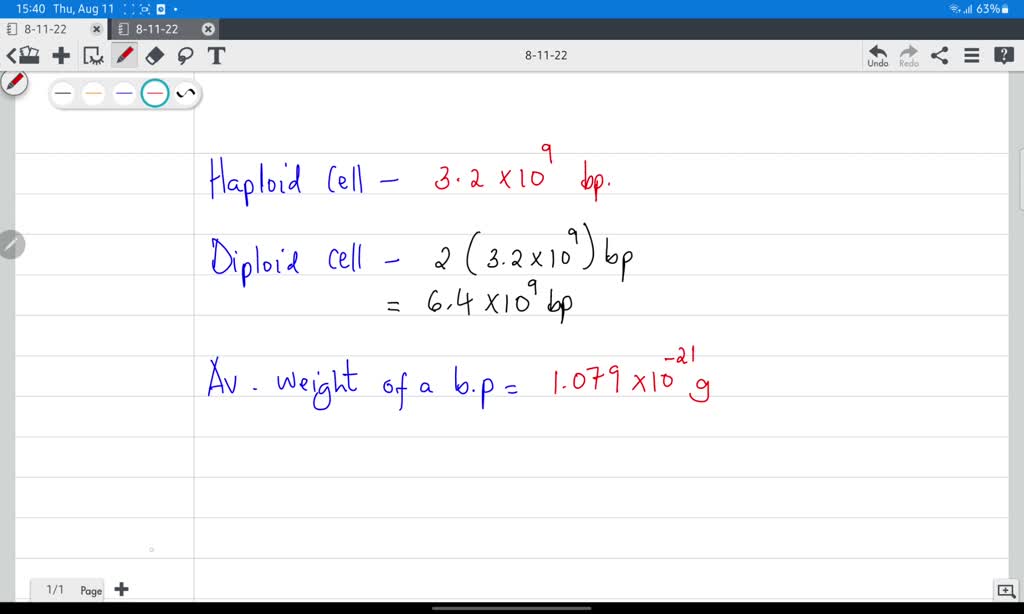 15:40 Thu, Aug 11 63%
8-11-22 8-11-22
T 8-11-22 Undo Redo
Haploid cell - 3.2 x10⁹ bp.
Diploid cell - 2 (3.2x10⁹) bp
= 6.4 x10⁹ bp
Av. weight of a b.p = 1.079 x10⁻²¹ g
1/1 Page